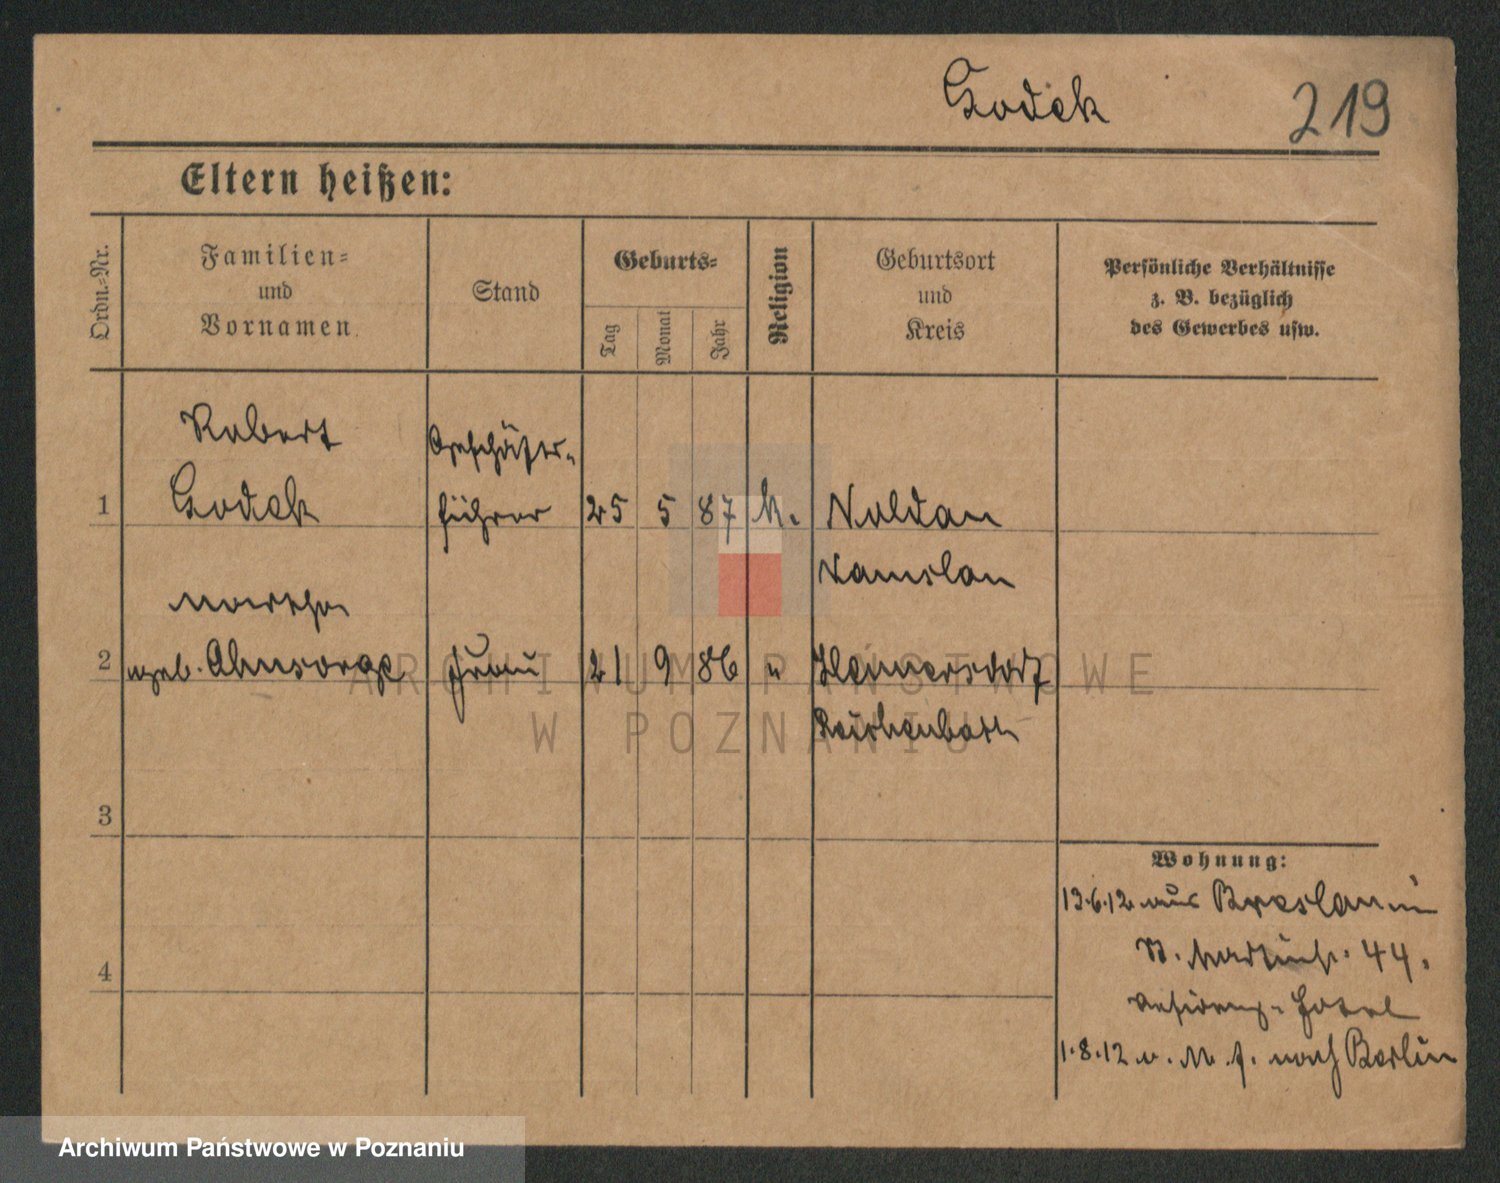 Godek
219
Eltern heißen:
Ordn.=Nr.
Familien=
und
Vornamen.
Stand
Geburts=
Tag
Monat
Jahr
Religion
Geburtsort
und
Kreis
Persönliche Verhältnisse
z. B. bezüglich
des Gewerbes usw.
Robert
Geschäfts-
1 Godek führer 25 5 87 k. Noldau
Namslau
Martha
2 geb. Ahnsorge Frau 21 9 86 " Heinersdorf
Reichenbach
3
Wohnung:
13.6.12 aus Breslau in
St. Martinstr. 44.
4
Hotel
1.8.12 m. nach Berlin
ARCHIWUM PAŃSTWOWE
W POZNANIU
Archiwum Państwowe w Poznaniu